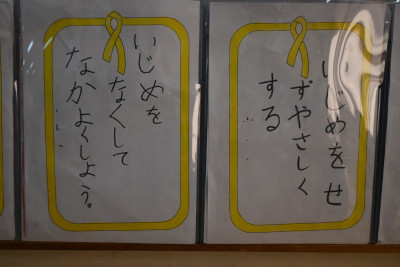 いじめをせ
ずやさしく
する
いじめを
なくして
なかよくしよう。